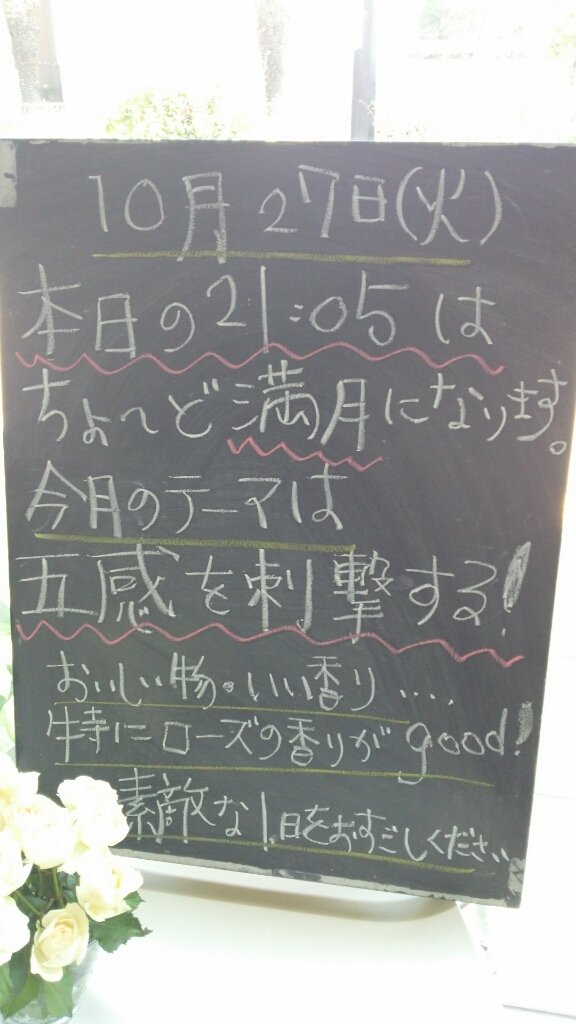 10月27日(火)
本日の21:05は
ちょ〜ど満月になります。
今月のテーマは
五感を刺撃する!
おいしい物。いい香り....
特にローズの香りがgood!
素敵な1日をおすごしください